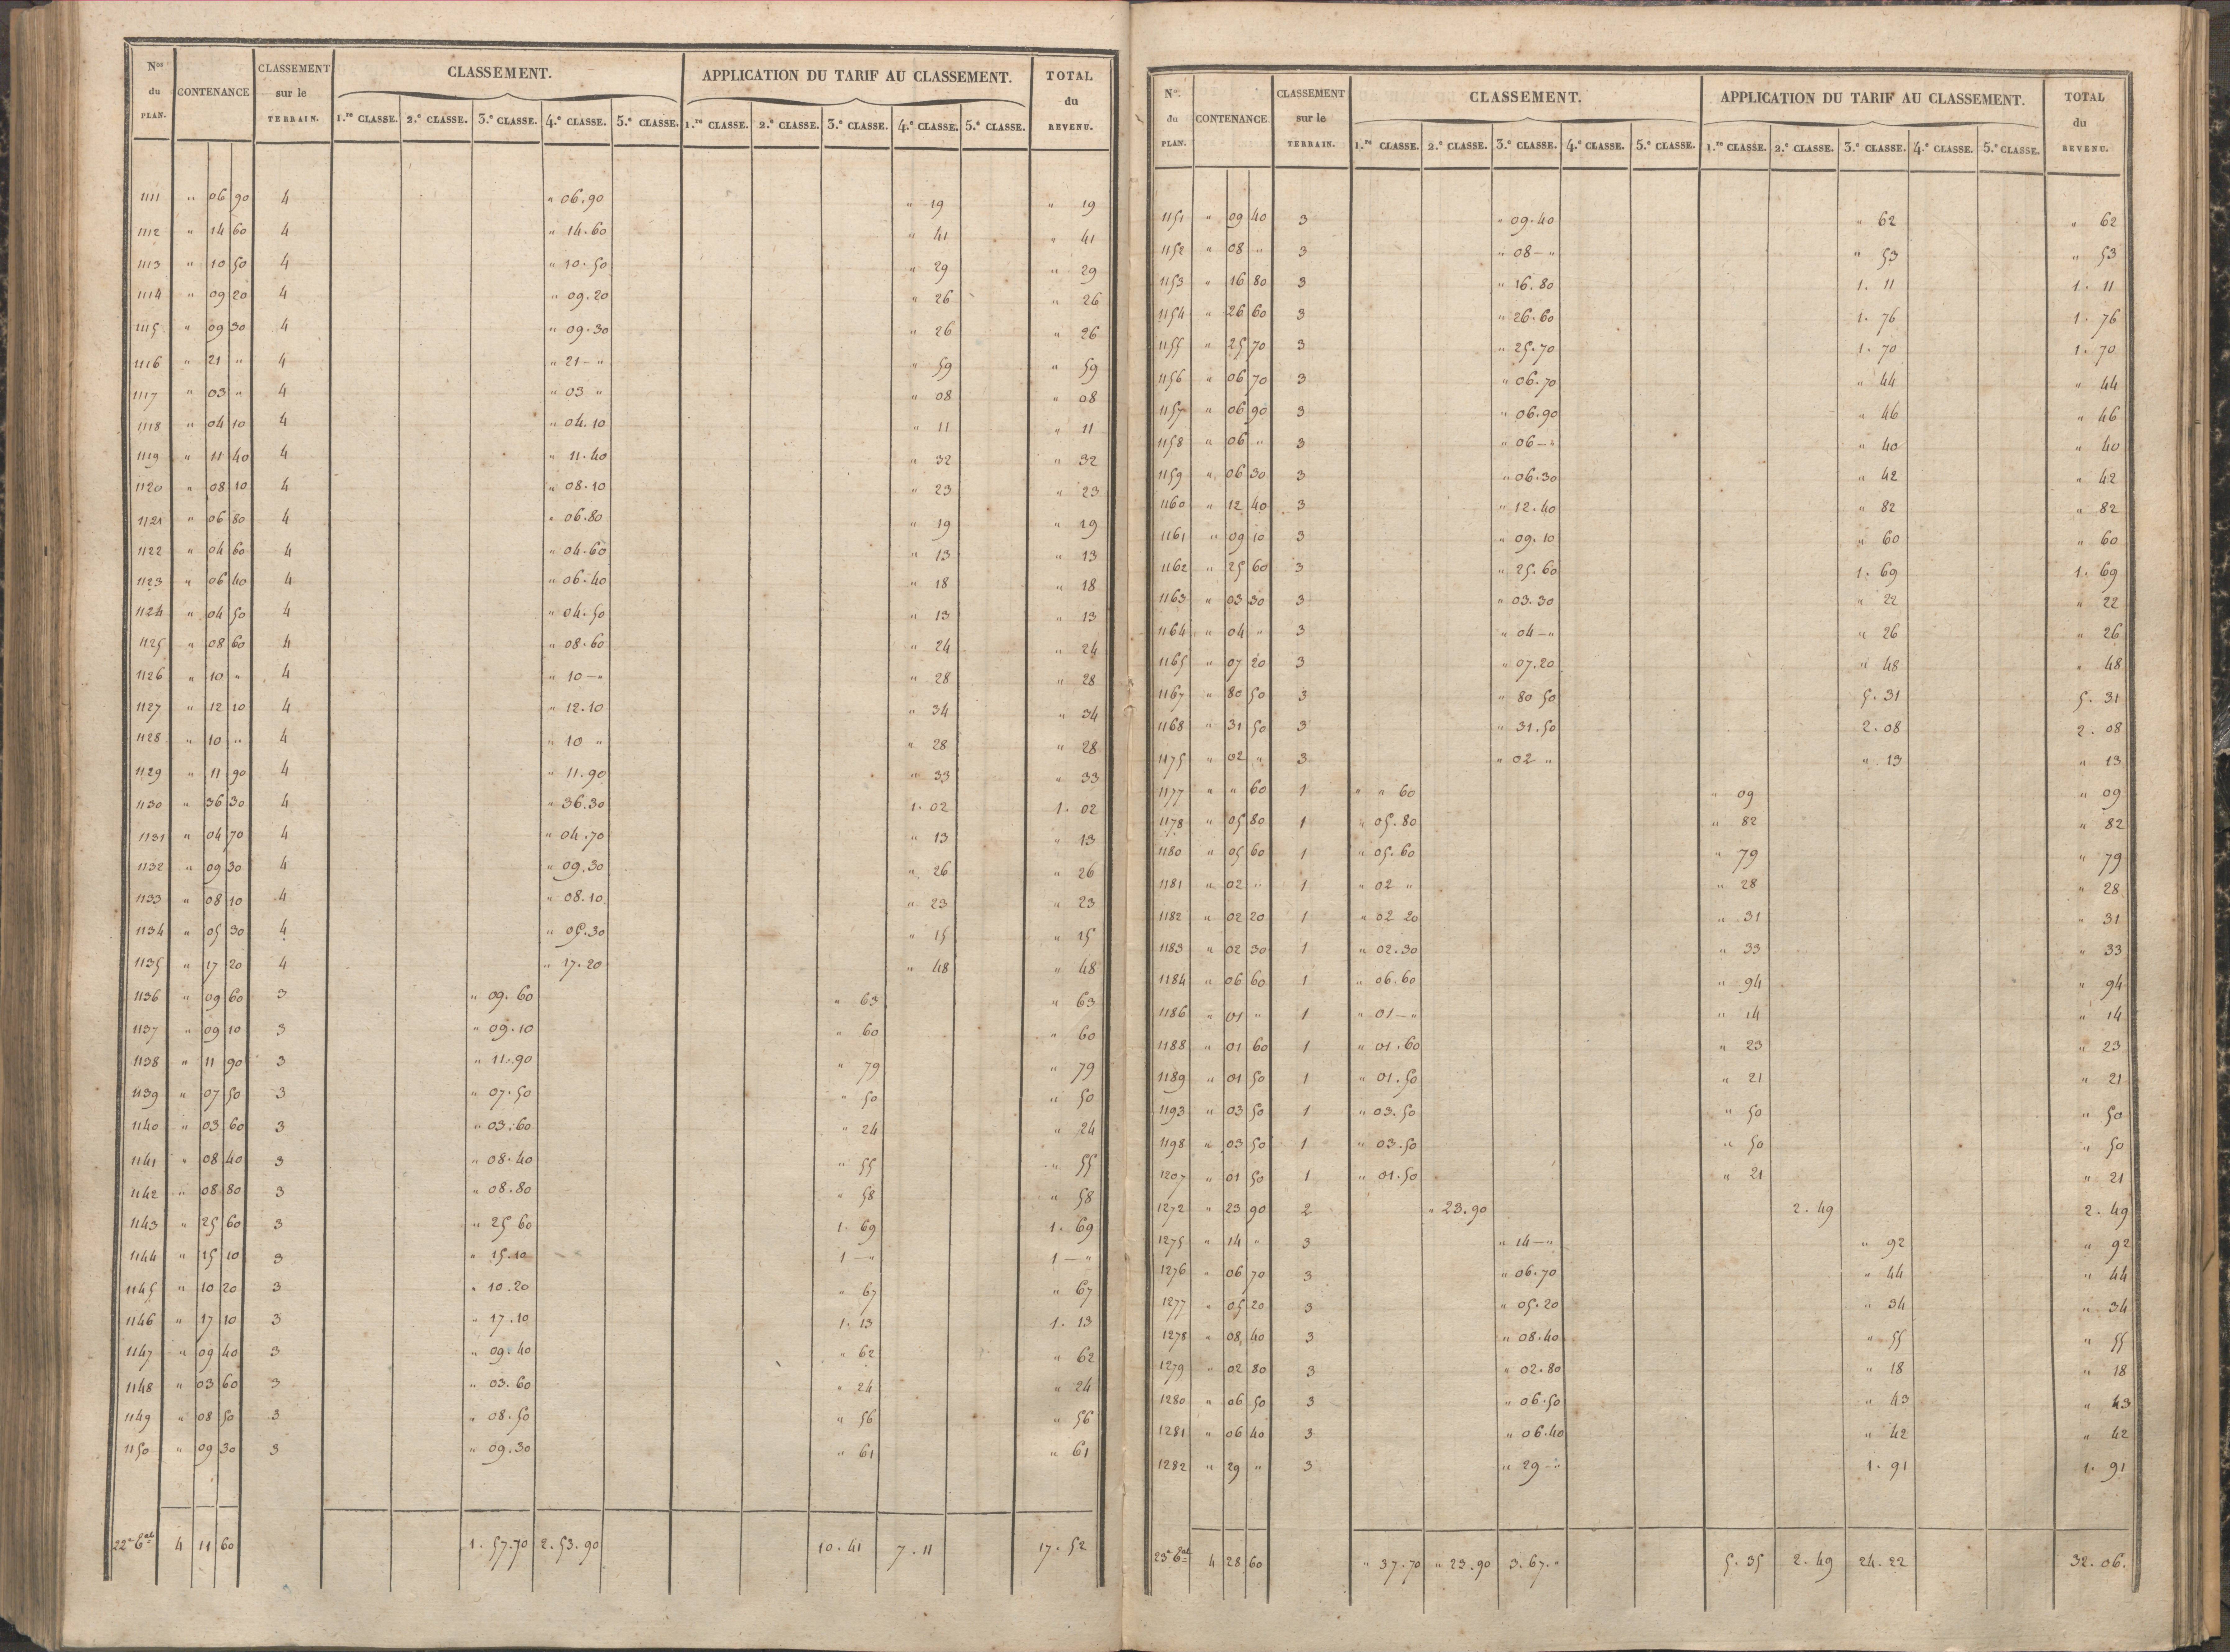 Nos du PLAN. CONTENANCE CLASSEMENT sur le TERRAIN. CLASSEMENT. APPLICATION DU TARIF AU CLASSEMENT. TOTAL du REVENU.
1.re CLASSE. 2.e CLASSE. 3.e CLASSE. 4.e CLASSE. 5.e CLASSE. 1.re CLASSE. 2.e CLASSE. 3.e CLASSE. 4.e CLASSE. 5.e CLASSE.
1111 " 06 90 4 " 06.90 " 19 " 19
1112 " 14 60 4 " 14.60 " 41 " 41
1113 " 10 50 4 " 10.50 " 29 " 29
1114 " 09 20 4 " 09.20 " 26 " 26
1115 " 09 30 4 " 09.30 " 26 " 26
1116 " 21 " 4 " 21 - " " 59 " 59
1117 " 03 " 4 " 03 " " 08 " 08
1118 " 04 10 4 " 04.10 " 11 " 11
1119 " 11 40 4 " 11.40 " 32 " 32
1120 " 08 10 4 " 08.10 " 23 " 23
1121 " 06 80 4 " 06.80 " 19 " 19
1122 " 04 60 4 " 04.60 " 13 " 13
1123 " 06 40 4 " 06.40 " 18 " 18
1124 " 04 50 4 " 04.50 " 13 " 13
1125 " 08 60 4 " 08.60 " 24 " 24
1126 " 10 " 4 " 10 - " " 28 " 28
1127 " 12 10 4 " 12.10 " 34 " 34
1128 " 10 " 4 " 10 " " 28 " 28
1129 " 11 90 4 " 11.90 " 33 " 33
1130 " 36 30 4 " 36.30 1. 02 1. 02
1131 " 04 70 4 " 04.70 " 13 " 13
1132 " 09 30 4 " 09.30 " 26 " 26
1133 " 08 10 4 " 08.10 " 23 " 23
1134 " 05 30 4 " 05.30 " 15 " 15
1135 " 17 20 4 " 17.20 " 48 " 48
1136 " 09 60 3 " 09.60 " 63 " 63
1137 " 09 10 3 " 09.10 " 60 " 60
1138 " 11 90 3 " 11.90 " 79 " 79
1139 " 07 50 3 " 07.50 " 50 " 50
1140 " 03 60 3 " 03.60 " 24 " 24
1141 " 08 40 3 " 08.40 " 55 " 55
1142 " 08 80 3 " 08.80 " 58 " 58
1143 " 25 60 3 " 25 60 1. 69 1. 69
1144 " 15 10 3 " 15.10 1 - " 1 - "
1145 " 10 20 3 " 10.20 " 67 " 67
1146 " 17 10 3 " 17.10 1. 13 1. 13
1147 " 09 40 3 " 09.40 " 62 " 62
1148 " 03 60 3 " 03.60 " 24 " 24
1149 " 08 50 3 " 08.50 " 56 " 56
1150 " 09 30 3 " 09.30 " 61 " 61
22e 4 11 60 1. 57.70 2. 53. 90 10. 41 7. 11 17. 52
No. du PLAN. CONTENANCE CLASSEMENT sur le TERRAIN. CLASSEMENT. APPLICATION DU TARIF AU CLASSEMENT. TOTAL du REVENU.
1.re CLASSE. 2.e CLASSE. 3.e CLASSE. 4.e CLASSE. 5.e CLASSE. 1.re CLASSE. 2.e CLASSE. 3.e CLASSE. 4.e CLASSE. 5.e CLASSE.
1151 " 09 40 3 " 09.40 " 62 " 62
1152 " 08 " 3 " 08 - " " 53 " 53
1153 " 16 80 3 " 16.80 1. 11 1. 11
1154 " 26 60 3 " 26.60 1. 76 1. 76
1155 " 25 70 3 " 25.70 1. 70 1. 70
1156 " 06 70 3 " 06.70 " 44 " 44
1157 " 06 90 3 " 06.90 " 46 " 46
1158 " 06 " 3 " 06 - " " 40 " 40
1159 " 06 30 3 " 06.30 " 42 " 42
1160 " 12 40 3 " 12.40 " 82 " 82
1161 " 09 10 3 " 09.10 " 60 " 60
1162 " 25 60 3 " 25.60 1. 69 1. 69
1163 " 03 30 3 " 03.30 " 22 " 22
1164 " 04 " 3 " 04 - " " 26 " 26
1165 " 07 20 3 " 07.20 " 48 " 48
1167 " 80 50 3 " 80 50 5. 31 5. 31
1168 " 31 50 3 " 31.50 2. 08 2. 08
1175 " 02 " 3 " 02 " " 13 " 13
1177 " " 60 1 " " 60 " 09 " 09
1178 " 05 80 1 " 05.80 " 82 " 82
1180 " 05 60 1 " 05.60 " 79 " 79
1181 " 02 " 1 " 02 " " 28 " 28
1182 " 02 20 1 " 02 20 " 31 " 31
1183 " 02 30 1 " 02.30 " 33 " 33
1184 " 06 60 1 " 06.60 " 94 " 94
1186 " 01 " 1 " 01 - " " 14 " 14
1188 " 01 60 1 " 01.60 " 23 " 23
1189 " 01 50 1 " 01.50 " 21 " 21
1193 " 03 50 1 " 03.50 " 50 " 50
1198 " 03 50 1 " 03.50 " 50 " 50
1207 " 01 50 1 " 01.50 " 21 " 21
1272 " 23 90 2 " 23.90 2. 49 2. 49
1275 " 14 " 3 " 14 - " " 92 " 92
1276 " 06 70 3 " 06.70 " 44 " 44
1277 " 05 20 3 " 05.20 " 34 " 34
1278 " 08 40 3 " 08.40 " 55 " 55
1279 " 02 80 3 " 02.80 " 18 " 18
1280 " 06 50 3 " 06.50 " 43 " 43
1281 " 06 40 3 " 06.40 " 42 " 42
1282 " 29 " 3 " 29 - " 1. 91 1. 91
23e 4 28 60 " 37.70 " 23.90 3. 67. " 5. 35 2. 49 24. 22 32. 06.